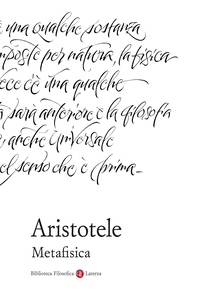 è una qualche sostanza
mposte per natura, la fisica
ece c'è una qualche
sarà anteriore e la filosofia
e anche universale
el senso che è prima
Aristotele
Metafisica
Biblioteca Filosofica Laterza